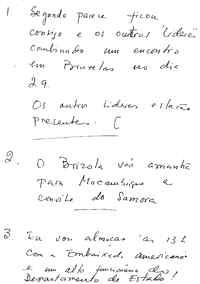 1 Segundo parece ficou
comigo e os outros líderes
combinado um encontro
em Bruxelas no dia
29.
Os outros líderes estarão
presentes. [
2. O Brizola vai amanhã
para Moçambique a
convite do Samora
3. Eu vou almoçar às 13h
com a Embaixada americana
e um alto funcionário do
Departamento de Estado!